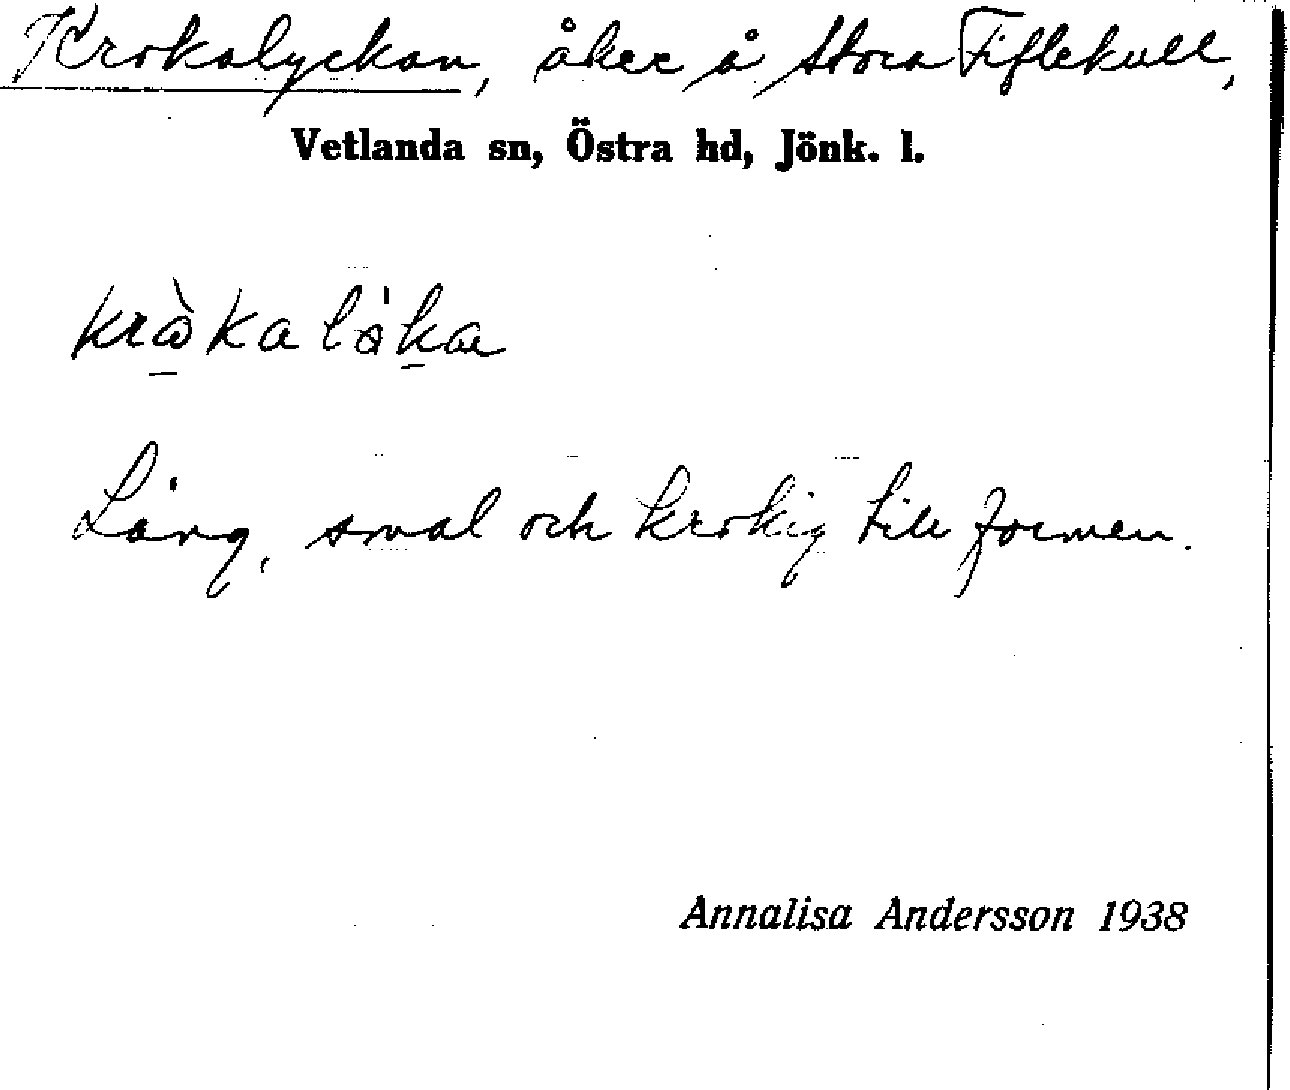 Krokalyckan, åker å Stora Fiflekull,
Vetlanda sn, Östra hd, Jönk. l.
Lång, smal och krokig till formen.
Annalisa Andersson 1938